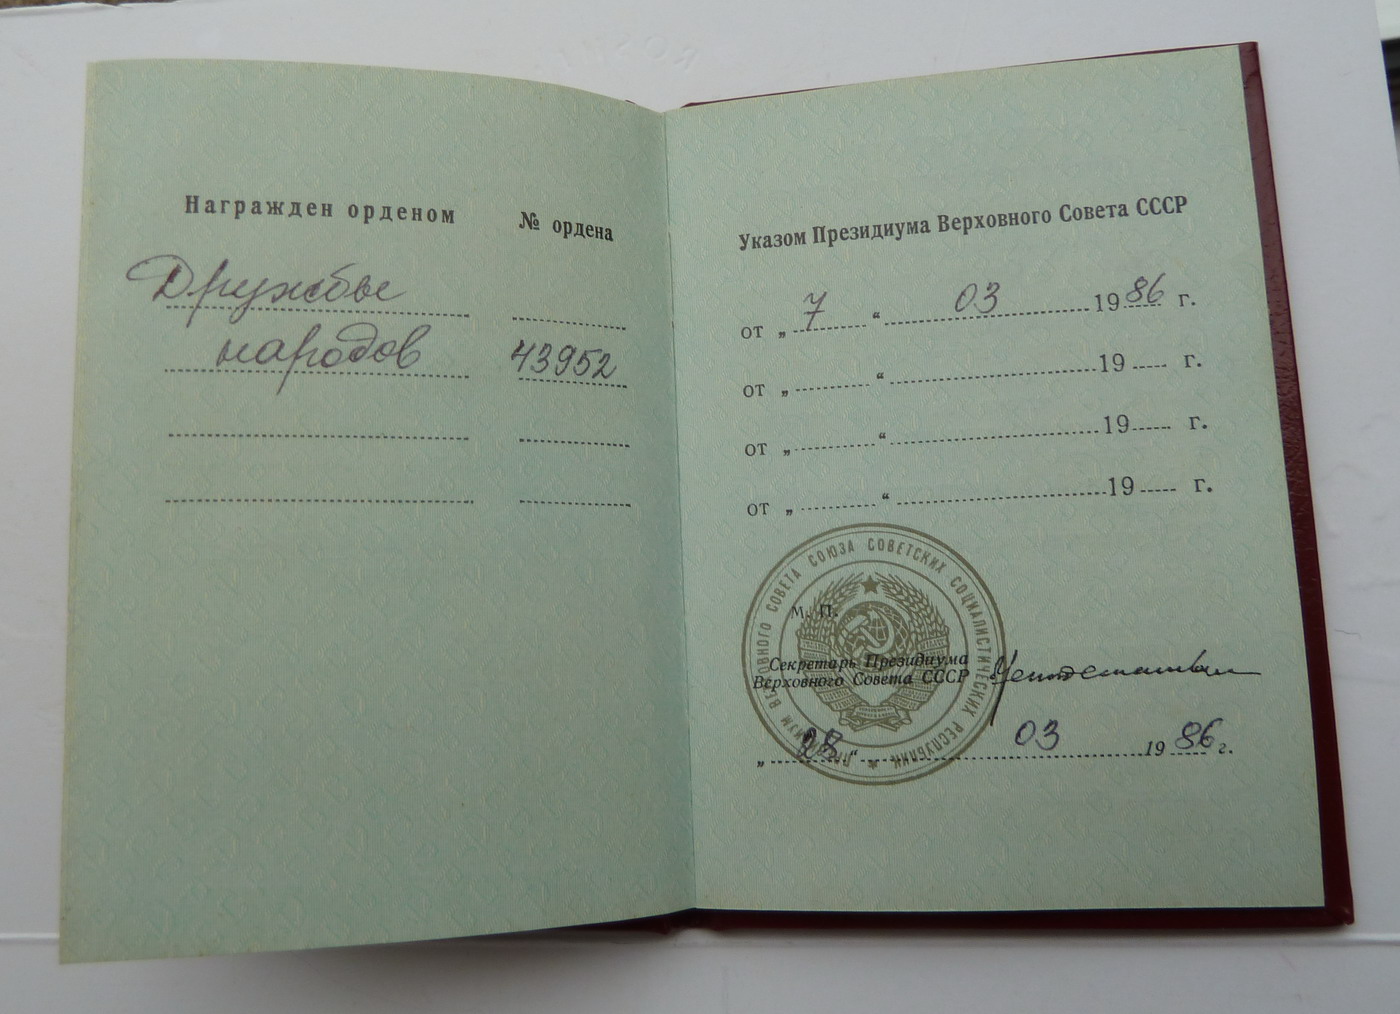 Награжден орденом
№ ордена
Дружбы
народов
43952
Указом Президиума Верховного Совета СССР
от „ 7 “ 03 19 86 г.
от „ “ 19 г.
от „ “ 19 г.
от „ “ 19 г.
ПРЕЗИДИУМ ВЕРХОВНОГО СОВЕТА СОЮЗА СОВЕТСКИХ СОЦИАЛИСТИЧЕСКИХ РЕСПУБЛИК
М. П.
Секретарь Президиума
Верховного Совета СССР
„ 28 “ 03 19 86 г.